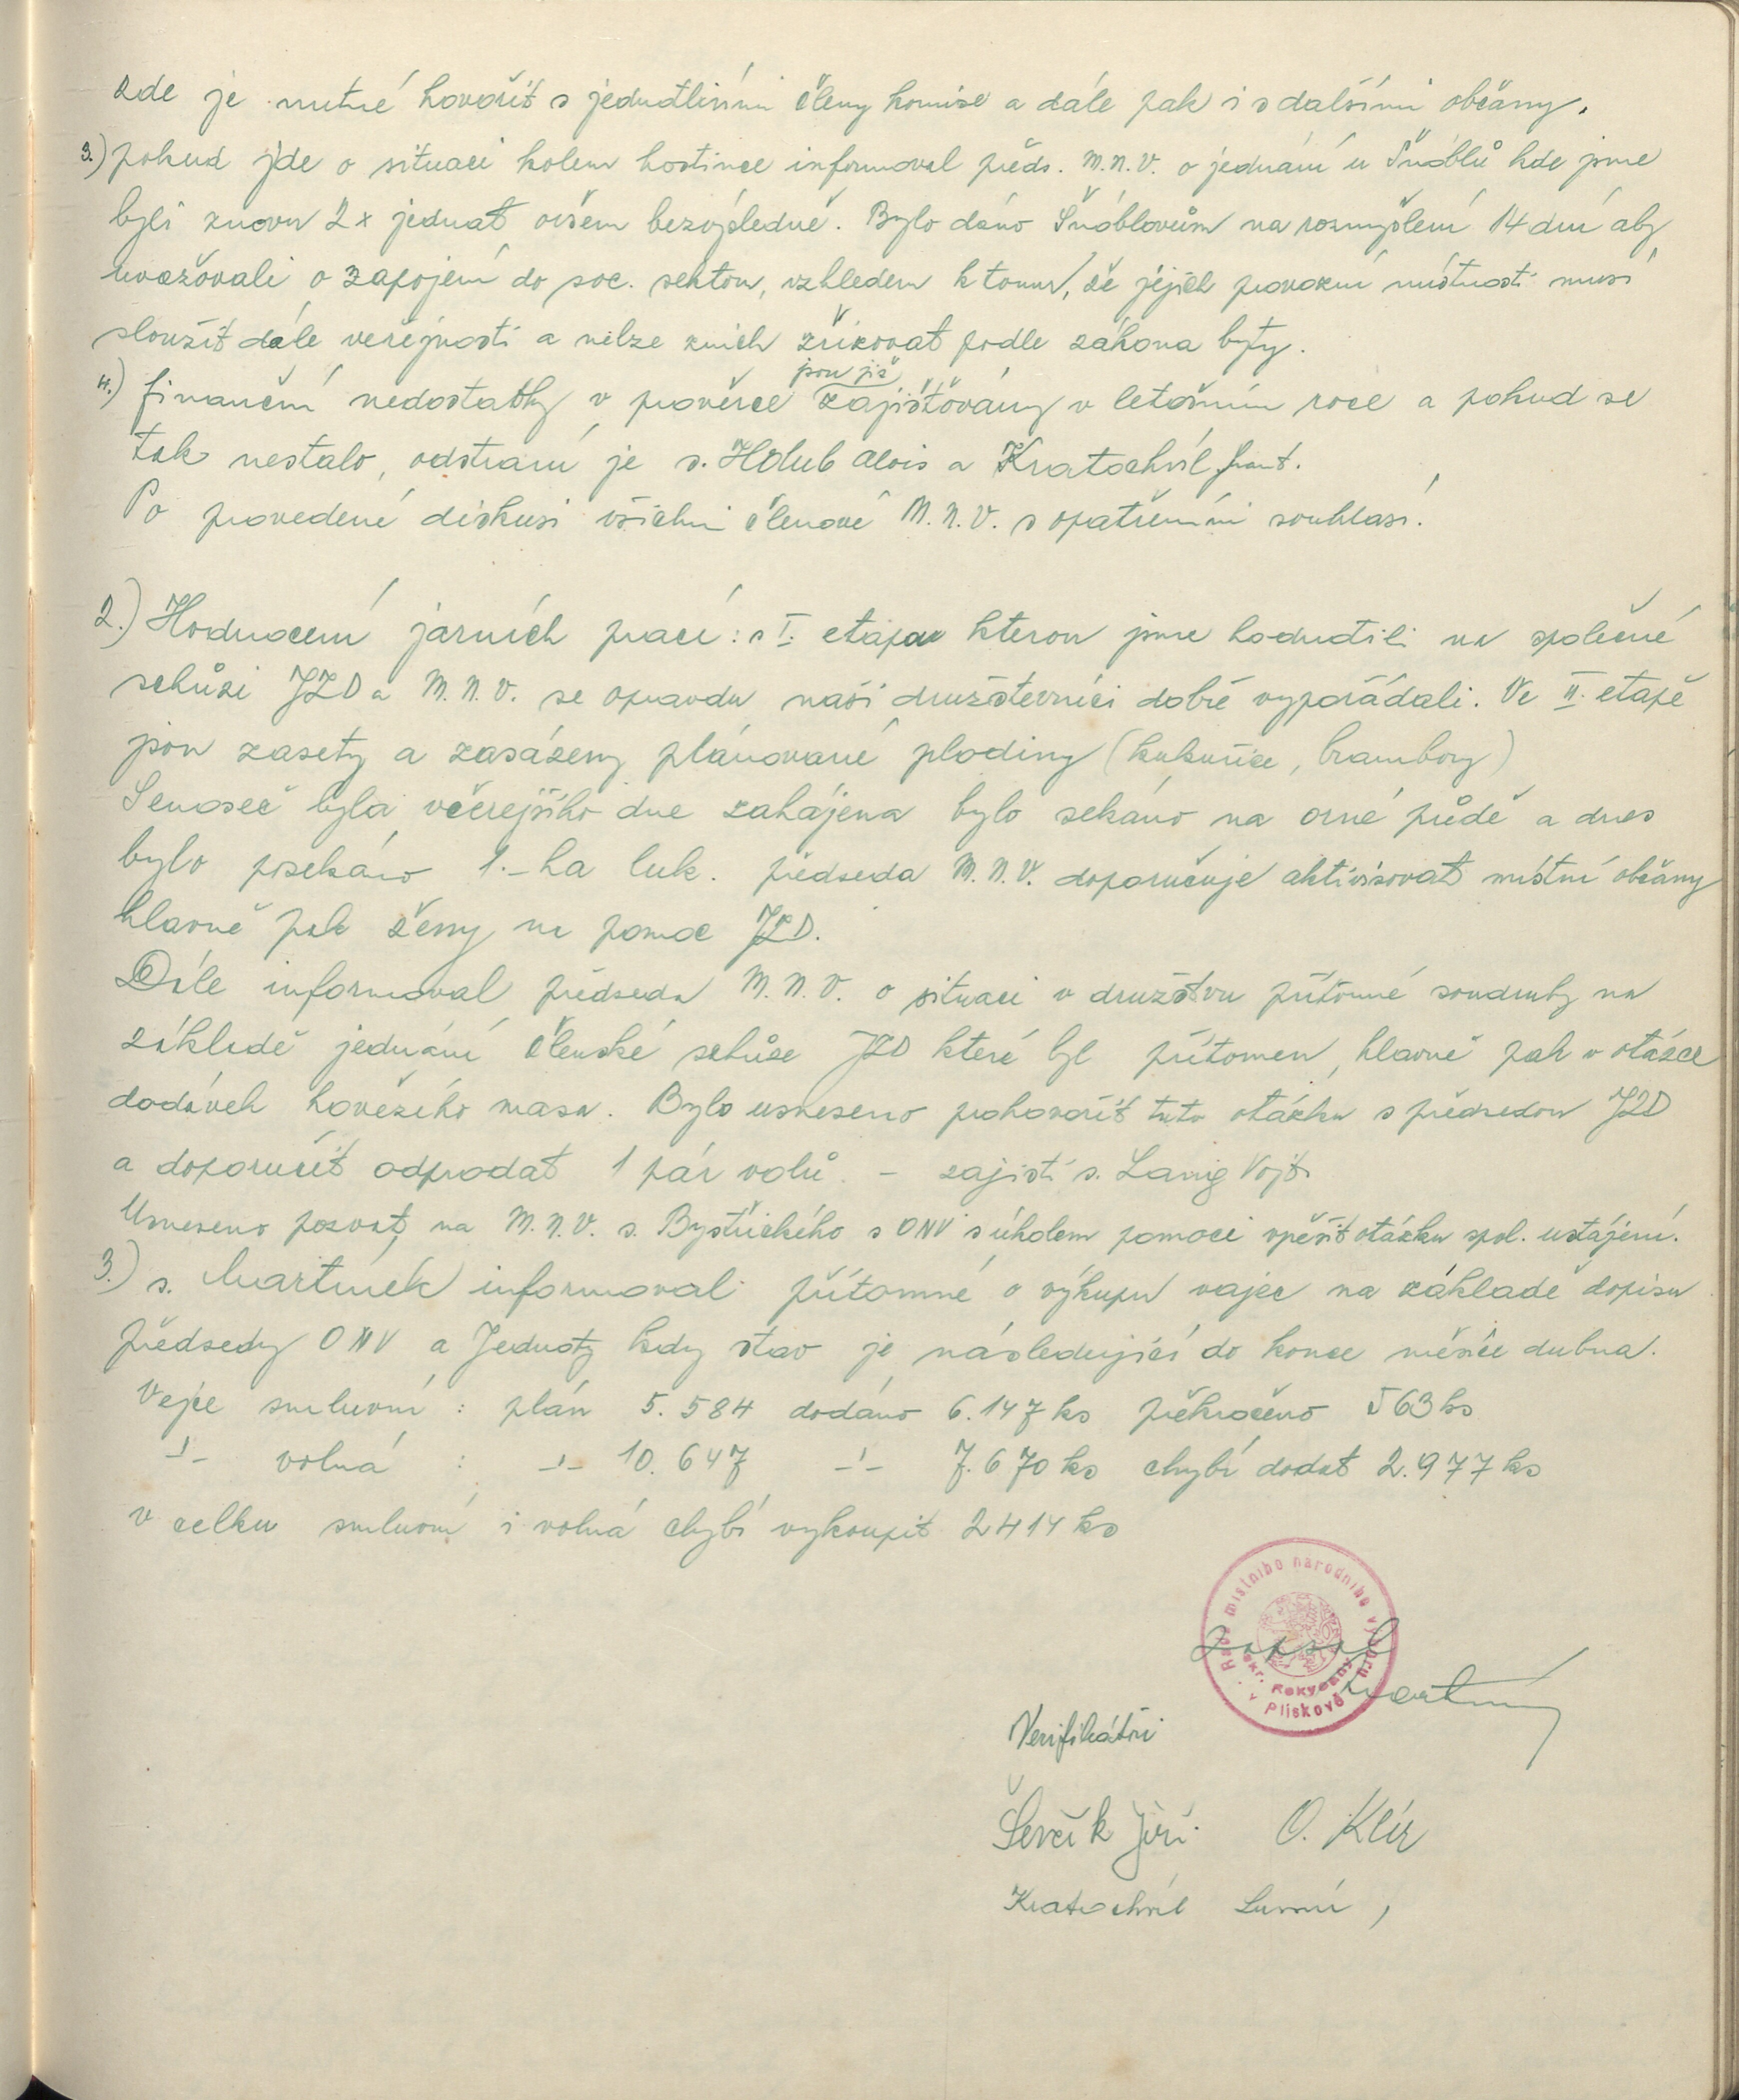 zde je nutné hovořit s jednotlivími členy komise a dále pak i s dalšími občany.
3.) pokud jde o situaci kolem hostince informoval předs. M.N.V. o jednání u Šnáblů kde jsme
byli znovu 2x jednat ovšem bezvýsledně. Bylo dáno Šnáblovům na rozmyšlení 14 dní aby
uvažovali o zapojení do soc. sektoru, vzhledem k tomu, že jejich provozní místnosti musí
sloužit dále veřejnosti a nelze znich zřizovat podle zákona byty.
4.) finanční nedostatky v prověrce jsou již zajišťovány v letošním roce a pokud se
tak nestalo, odstraní je s. Holub Alois a Kratochvíl Frant.
Po provedené diskusi všichni členové M.N.V. s opatřeními souhlasí.
2.) Hodnocení jarních prací: s I. etapou kterou jsme hodnotili na společné
schůzi JZD a M.N.V. se opravdu naši družstevníci dobře vypořádali. Ve II. etapě
jsou zasety a zasázeny plánované plodiny (kukuřice, brambory)
Senoseč byla včerejšího dne zahájena bylo sekáno na orné půdě a dnes
bylo posekáno 1.- ha luk. předseda M.N.V. doporučuje aktivisovat místní občany
hlavně pak ženy na pomoc JZD.
Dále informoval předseda M.N.V. o situaci v družstvu přítomné soudruhy na
základě jednání členské schůze JZD které byl přítomen, hlavně pak v otázce
dodávek hovězího masa. Bylo usneseno pohovořit tuto otázku s předsedou JZD
a doporučit odprodat 1 pár volů. - zajistí s. Lanig Vojt.
Usneseno pozvat na M.N.V. s. Bystřického s ONV s úkolem pomoci vyřešit otázku spol. ustájení.
3.) s. Martínek informoval přítomné o výkupu vajec na základě dopisu
předsedy ONV a Jednoty kdy stav je následující do konce měsíce dubna.
Vejce smluvní : plán 5.584 dodáno 6.147 ks překročeno 563 ks
-"- volná : -"- 10.647 -"- 7.670 ks chybí dodat 2.977 ks
v celku smluvní i volná chybí vykoupit 2414 ks
Rada místního národního výboru v Plískově
okr. Rokycany
Zapsal
Martínek
Verifikátoři
Ševčík Jiří. O. Klír
Kratochvíl